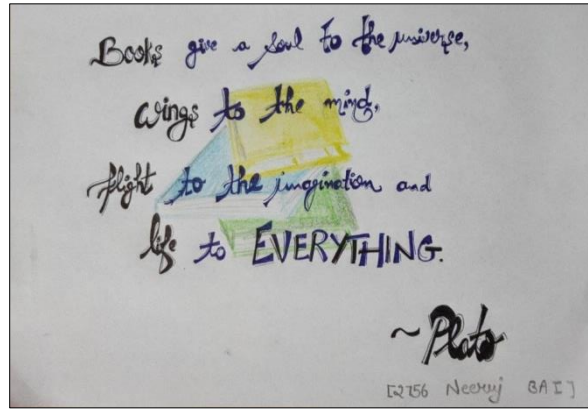 Books give a soul to the universe,
wings to the mind,
flight to the imagination and
life to EVERYTHING.
~ Plato
[2756 Neeruj BA I]